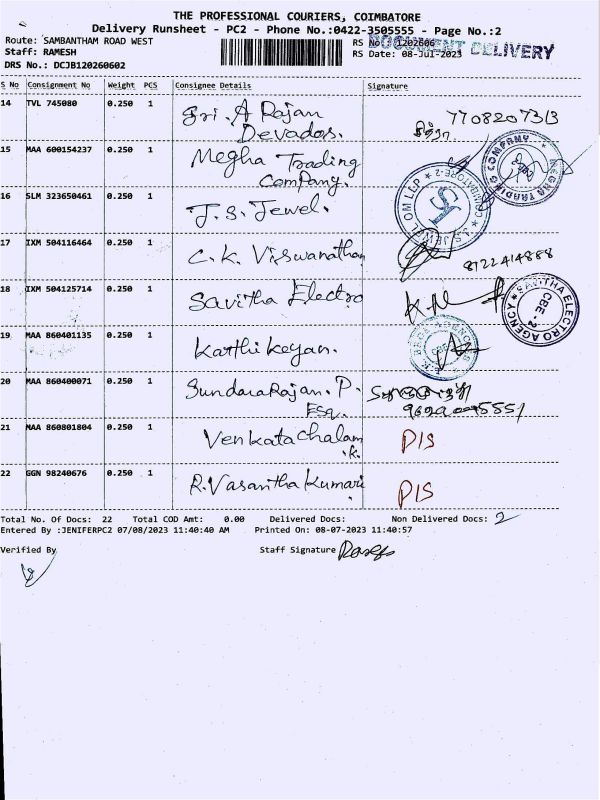 THE PROFESSIONAL COURIERS, COIMBATORE
Delivery Runsheet - PC2 - Phone No.:0422-3505555 - Page No.:2
Route: SAMBANTHAM ROAD WEST
RS No: 1202606
DOCUMENT DELIVERY
Staff: RAMESH
RS Date: 08-Jul-2023
DRS No.: DCJB120260602
S No Consignment No Weight PCS Consignee Details Signature
14 TVL 745080 0.250 1 Sri. A Rajan Devados. 7708207313
15 MAA 600154237 0.250 1 Megha Trading Company.
MEGHA TRADING COMPANY
16 SLM 323650461 0.250 1 J.S. Jewel.
17 IXM 504116464 0.250 1 C.K. Viswanathan 8122414888
18 IXM 504125714 0.250 1 Savitha Electro
SAVITHA ELECTRO AGENCY CBE - 2
19 MAA 860401135 0.250 1 Karthikeyan.
20 MAA 860400071 0.250 1 SundaraRajan. P. Esq.
21 MAA 860801804 0.250 1 Venkatachalam .K. DIS
22 GGN 98240676 0.250 1 R. Vasantha Kumari DIS
Total No. Of Docs: 22 Total COD Amt: 0.00 Delivered Docs: Non Delivered Docs: 2
Entered By :JENIFERPC2 07/08/2023 11:40:40 AM Printed On: 08-07-2023 11:40:57
Verified By Staff Signature